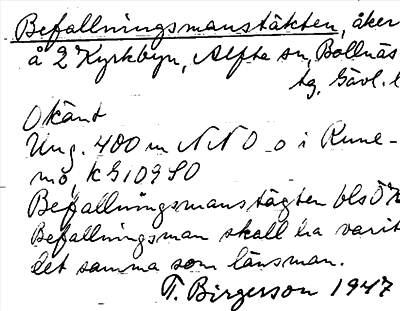 Befallningsmanstäkten, åker
å 2 Kyrkbyn, Alfta sn, Bollnäs
tg, Gävl. l
Okänt
Ung. 400 m NNO o i Rune-
mo, kG109SO
Befallningsmanstägten bls ÖK
Befallningsman skall ha varit
det samma som länsman.
T. Birgerson 1947